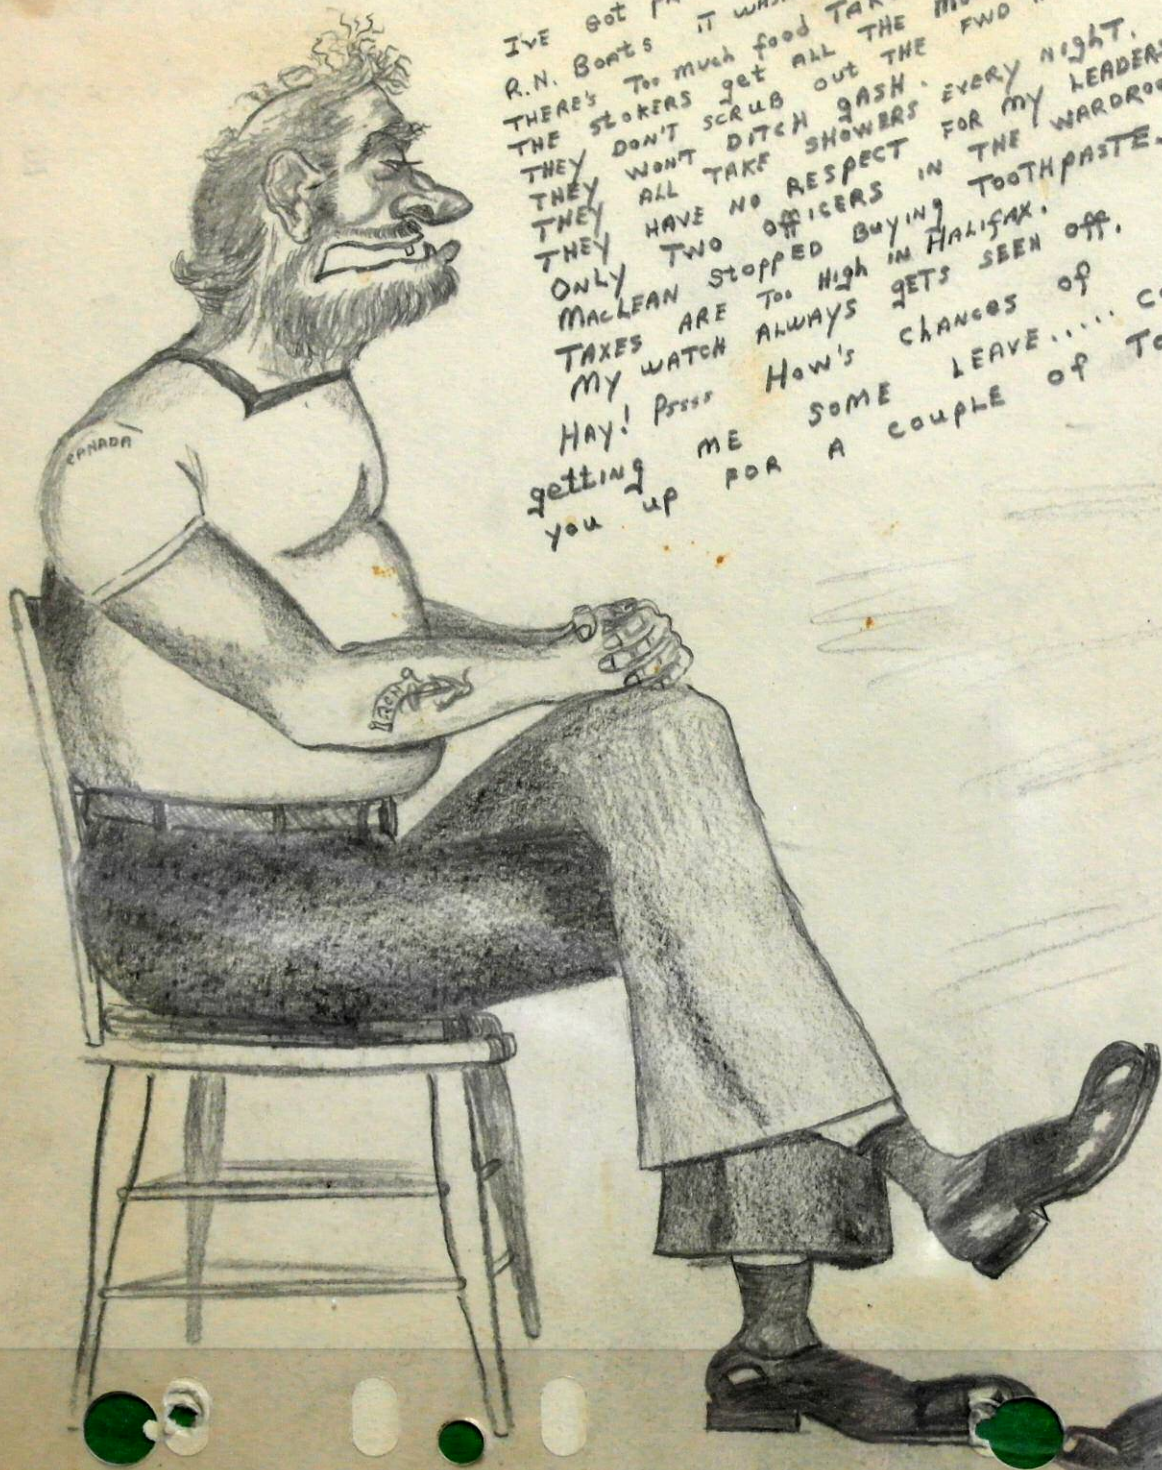 I'VE GOT
R.N. BOATS IT
THERE'S TOO MUCH FOOD
THE STOKERS get ALL THE
THEY DON'T SCRUB OUT THE FWD
THEY WON'T DITCH gASH.
THEY ALL TAKE SHOWERS EVERY NIGHT.
THEY HAVE NO RESPECT FOR MY
ONLY TWO OFFICERS IN THE
MACLEAN STOPPED BUYING TOOTHPASTE.
TAXES ARE TOO HIGH IN HALIFAX.
MY WATCH ALWAYS gETS SEEN OFF.
HAY! Pssss HOW'S CHANCES OF
getting ME SOME LEAVE.....
you up FOR A COUPLE OF
CANADA